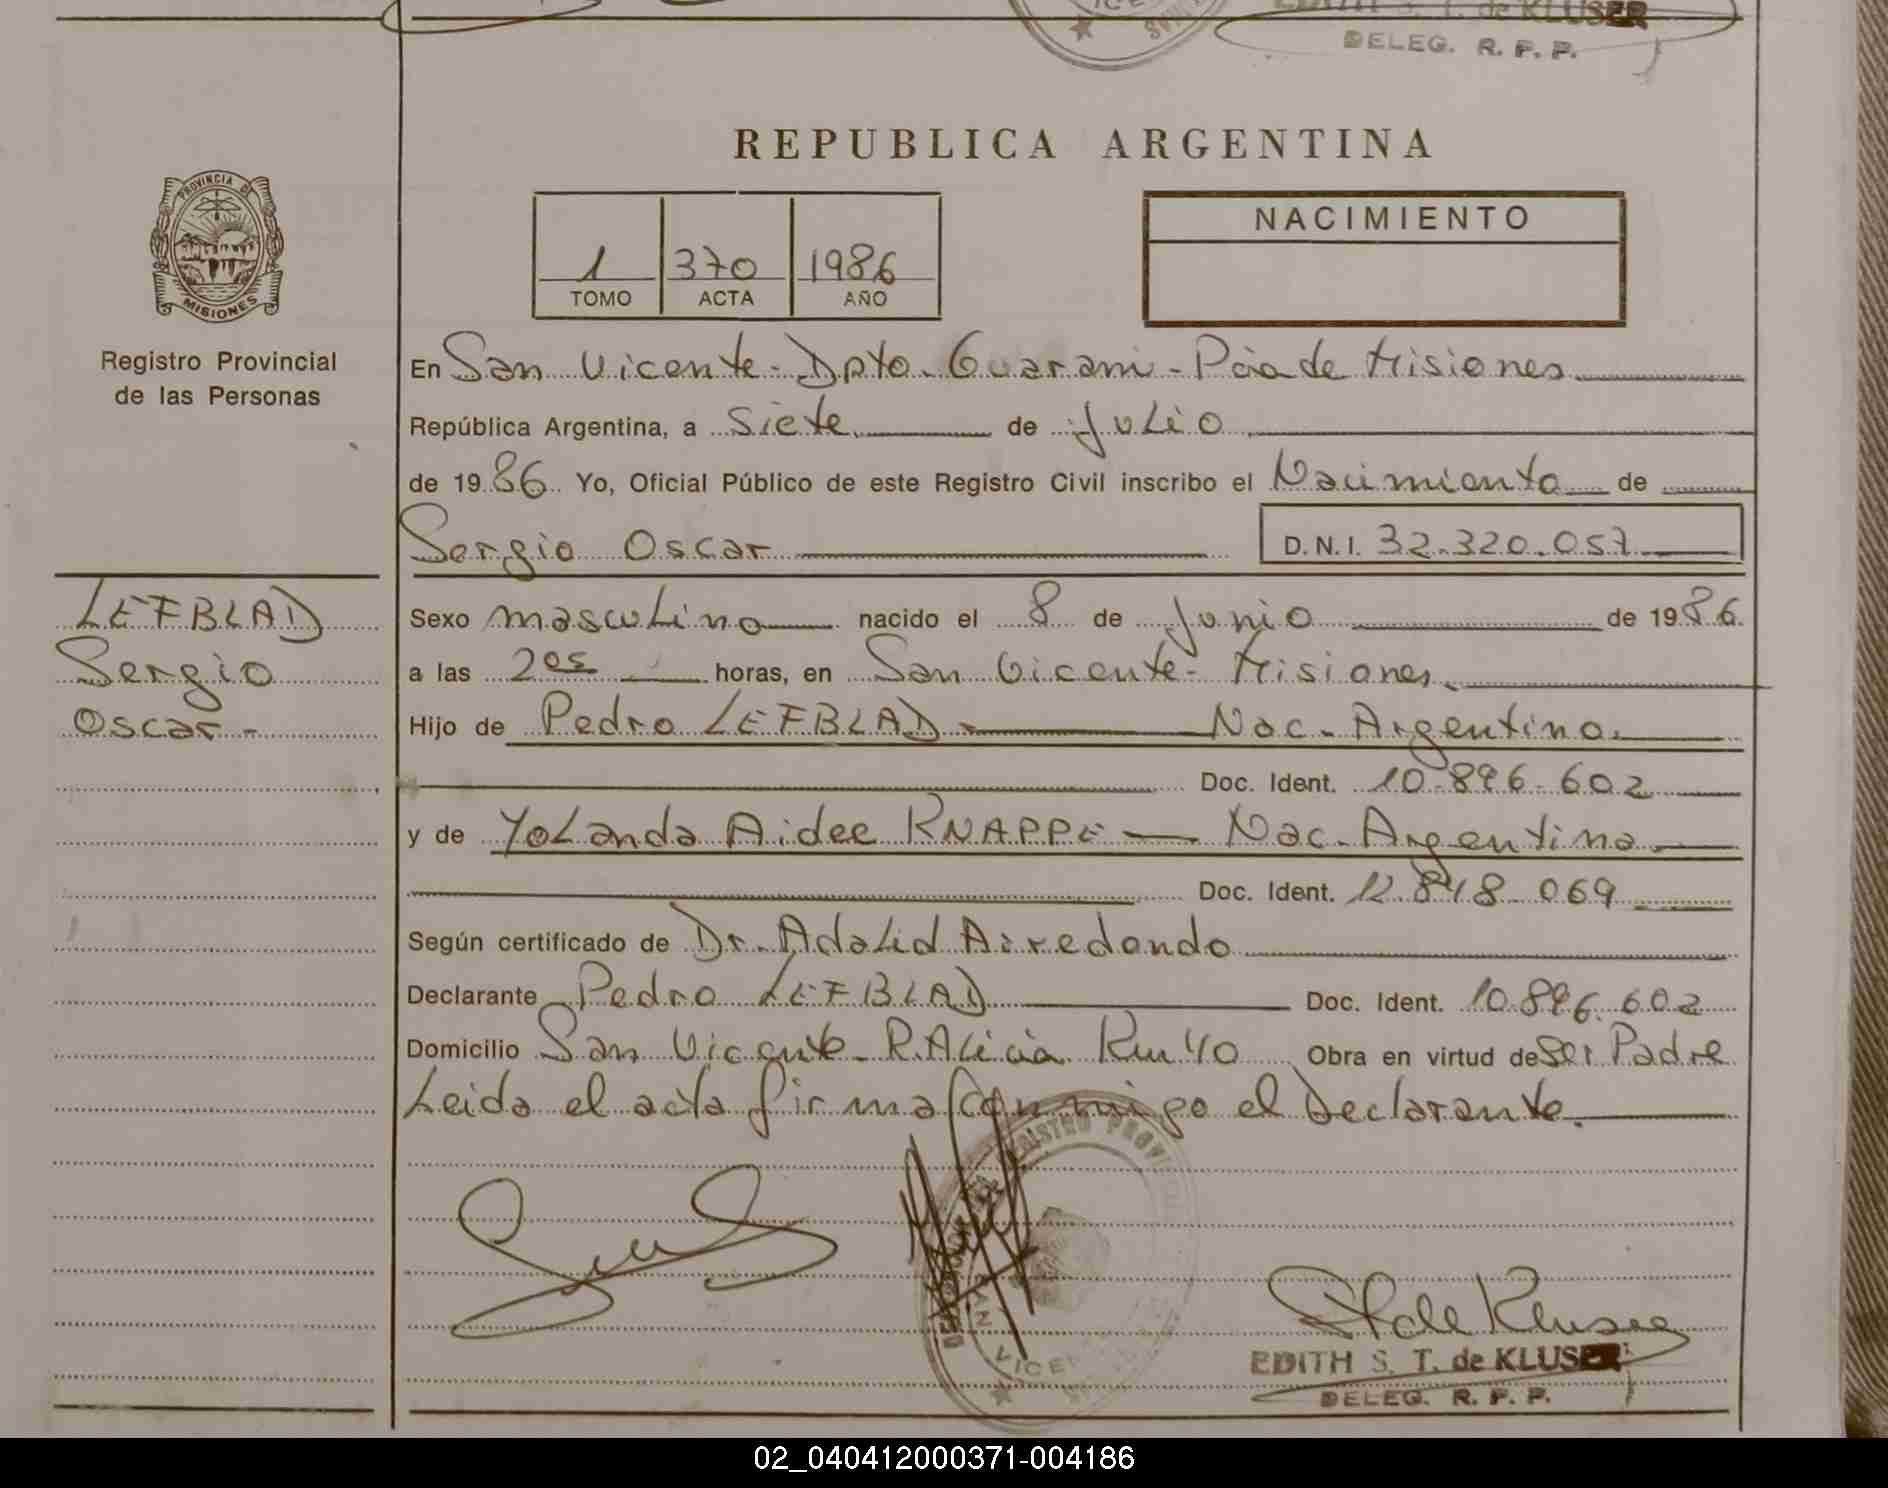 EDITH S. T. de KLUSER
DELEG. R. P. P.
REPUBLICA ARGENTINA
PROVINCIA DE
MISIONES
Registro Provincial
de las Personas
1 370 1986
TOMO ACTA AÑO
NACIMIENTO
En San Vicente - Dpto. Guarani - Pcia de Misiones
República Argentina, a siete de Julio
de 1986 Yo, Oficial Público de este Registro Civil inscribo el Nacimiento de
Sergio Oscar D.N.I. 32.320.057
LEFBLAD
Sergio
Oscar -
Sexo masculino nacido el 8 de Junio de 1986.
a las 2 05 horas, en San Vicente - Misiones.
Hijo de Pedro LEFBLAD - Nac. Argentina.
Doc. Ident. 10.896.602
y de Yolanda Aidee KNAPPE - Nac. Argentina.
Doc. Ident. 12.848.069
Según certificado de Dr. Adalid Arredondo
Declarante Pedro LEFBLAD Doc. Ident. 10.896.602
Domicilio San Vicente - R. Alicia Km 40 Obra en virtud de ser Padre
Leida el acta firma conmigo el Declarante.
REGISTRO PROVINCIAL
SAN VICENTE
EDITH S. T. de KLUSER
DELEG. R. P. P.
02_040412000371-004186